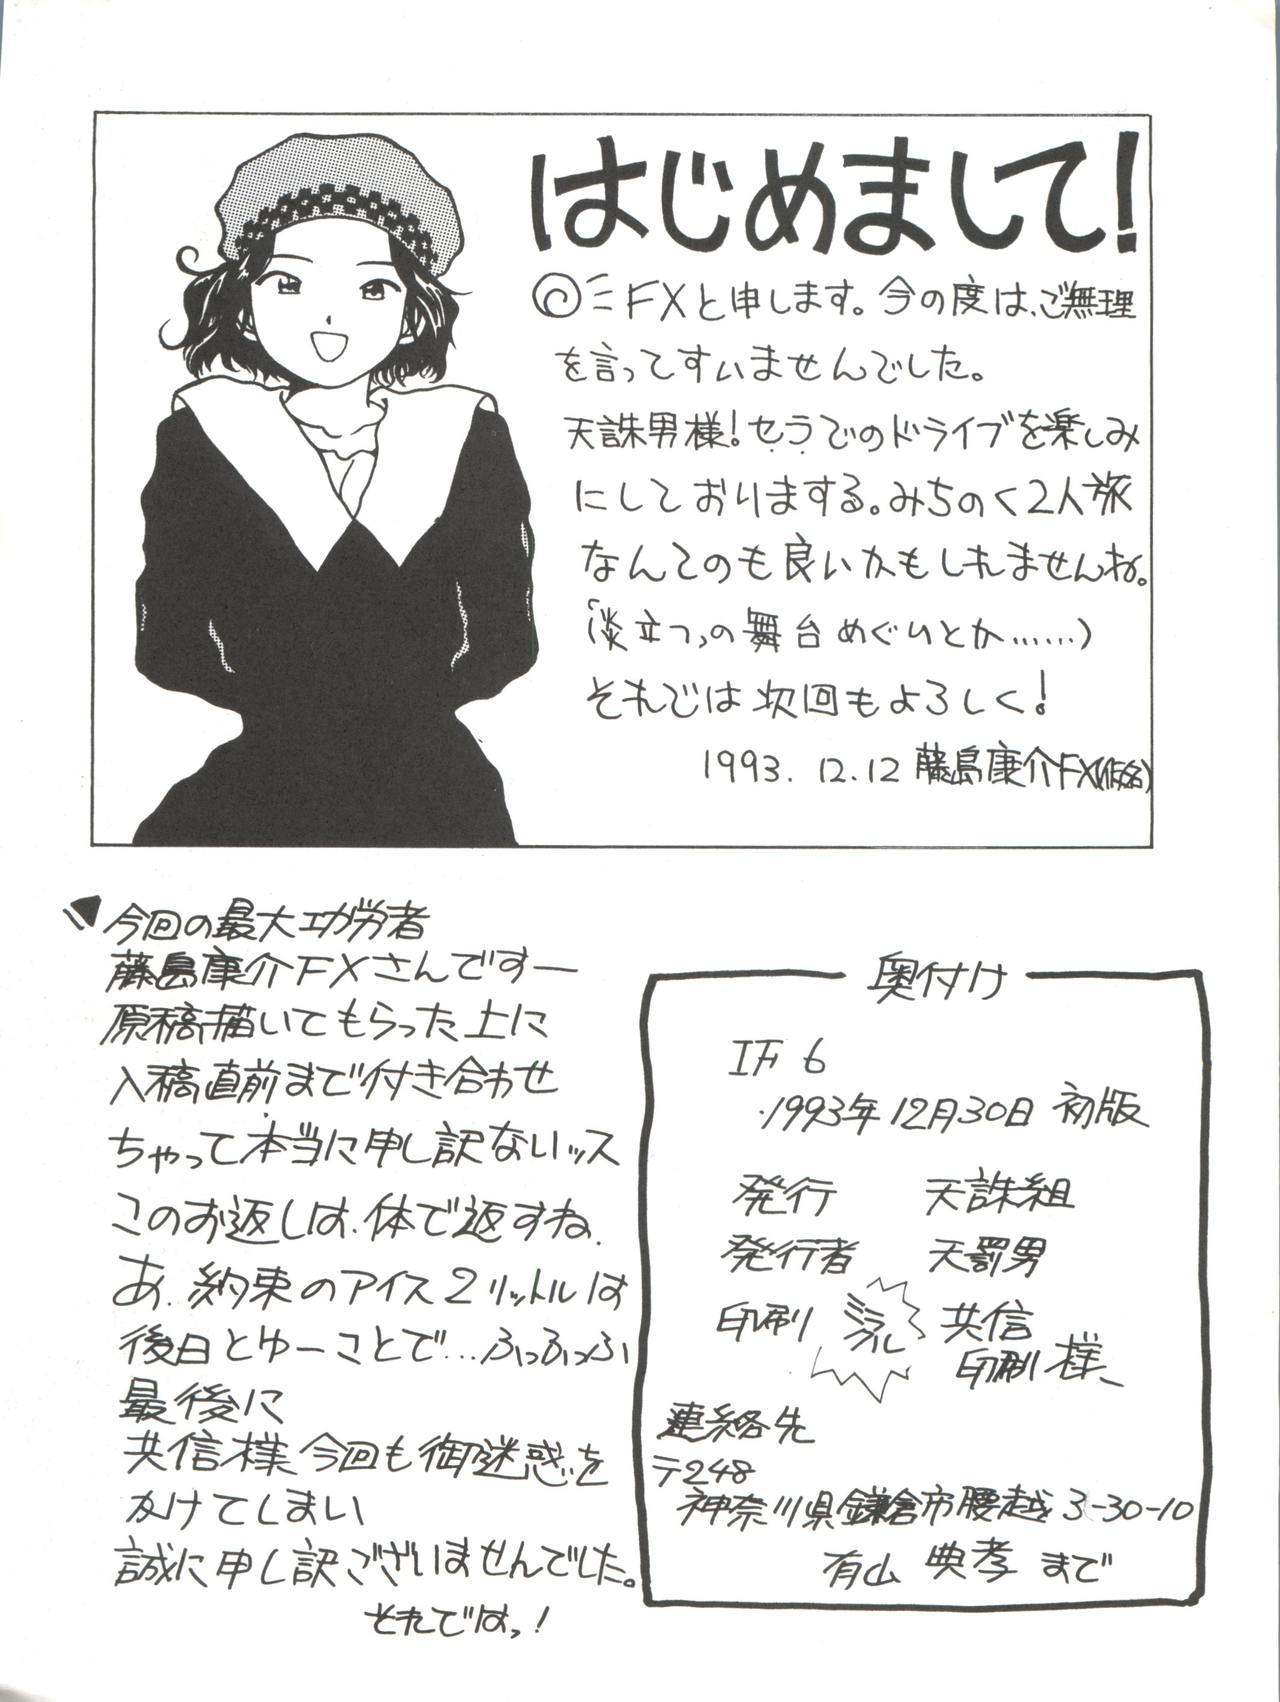 はじめまして!
FXと申します。今の度は、ご無理
を言ってすいませんでした。
天誅男様!セラでのドライブを楽しみ
にしておりまする。みちのく2人旅
なんてのも良いかもしれませんね。
の舞台めぐりとか……)
それでは次回もよろしく!
1993.12.12 藤島康介FX(仮名)
今回の最大功労者
藤島康介FXさんですー
原稿描いてもらった上に
入稿直前まで付き合わせ
ちゃって本当に申し訳ないッス
このお返しは、体で返すね、
あ、約束のアイス2リットルは
後日とゆーことで…ふっふっふ
最後に
共信様今回も御迷惑を
かけてしまい
誠に申し訳ございませんでした。
それではっ!
奥付け
IF 6
1993年12月30日 初版
発行 天誅組
発行者 天罰男
印刷 ミラクル 共信
印刷様
連絡先
〒248
神奈川県鎌倉市腰越3-30-10
有山 典孝 まで